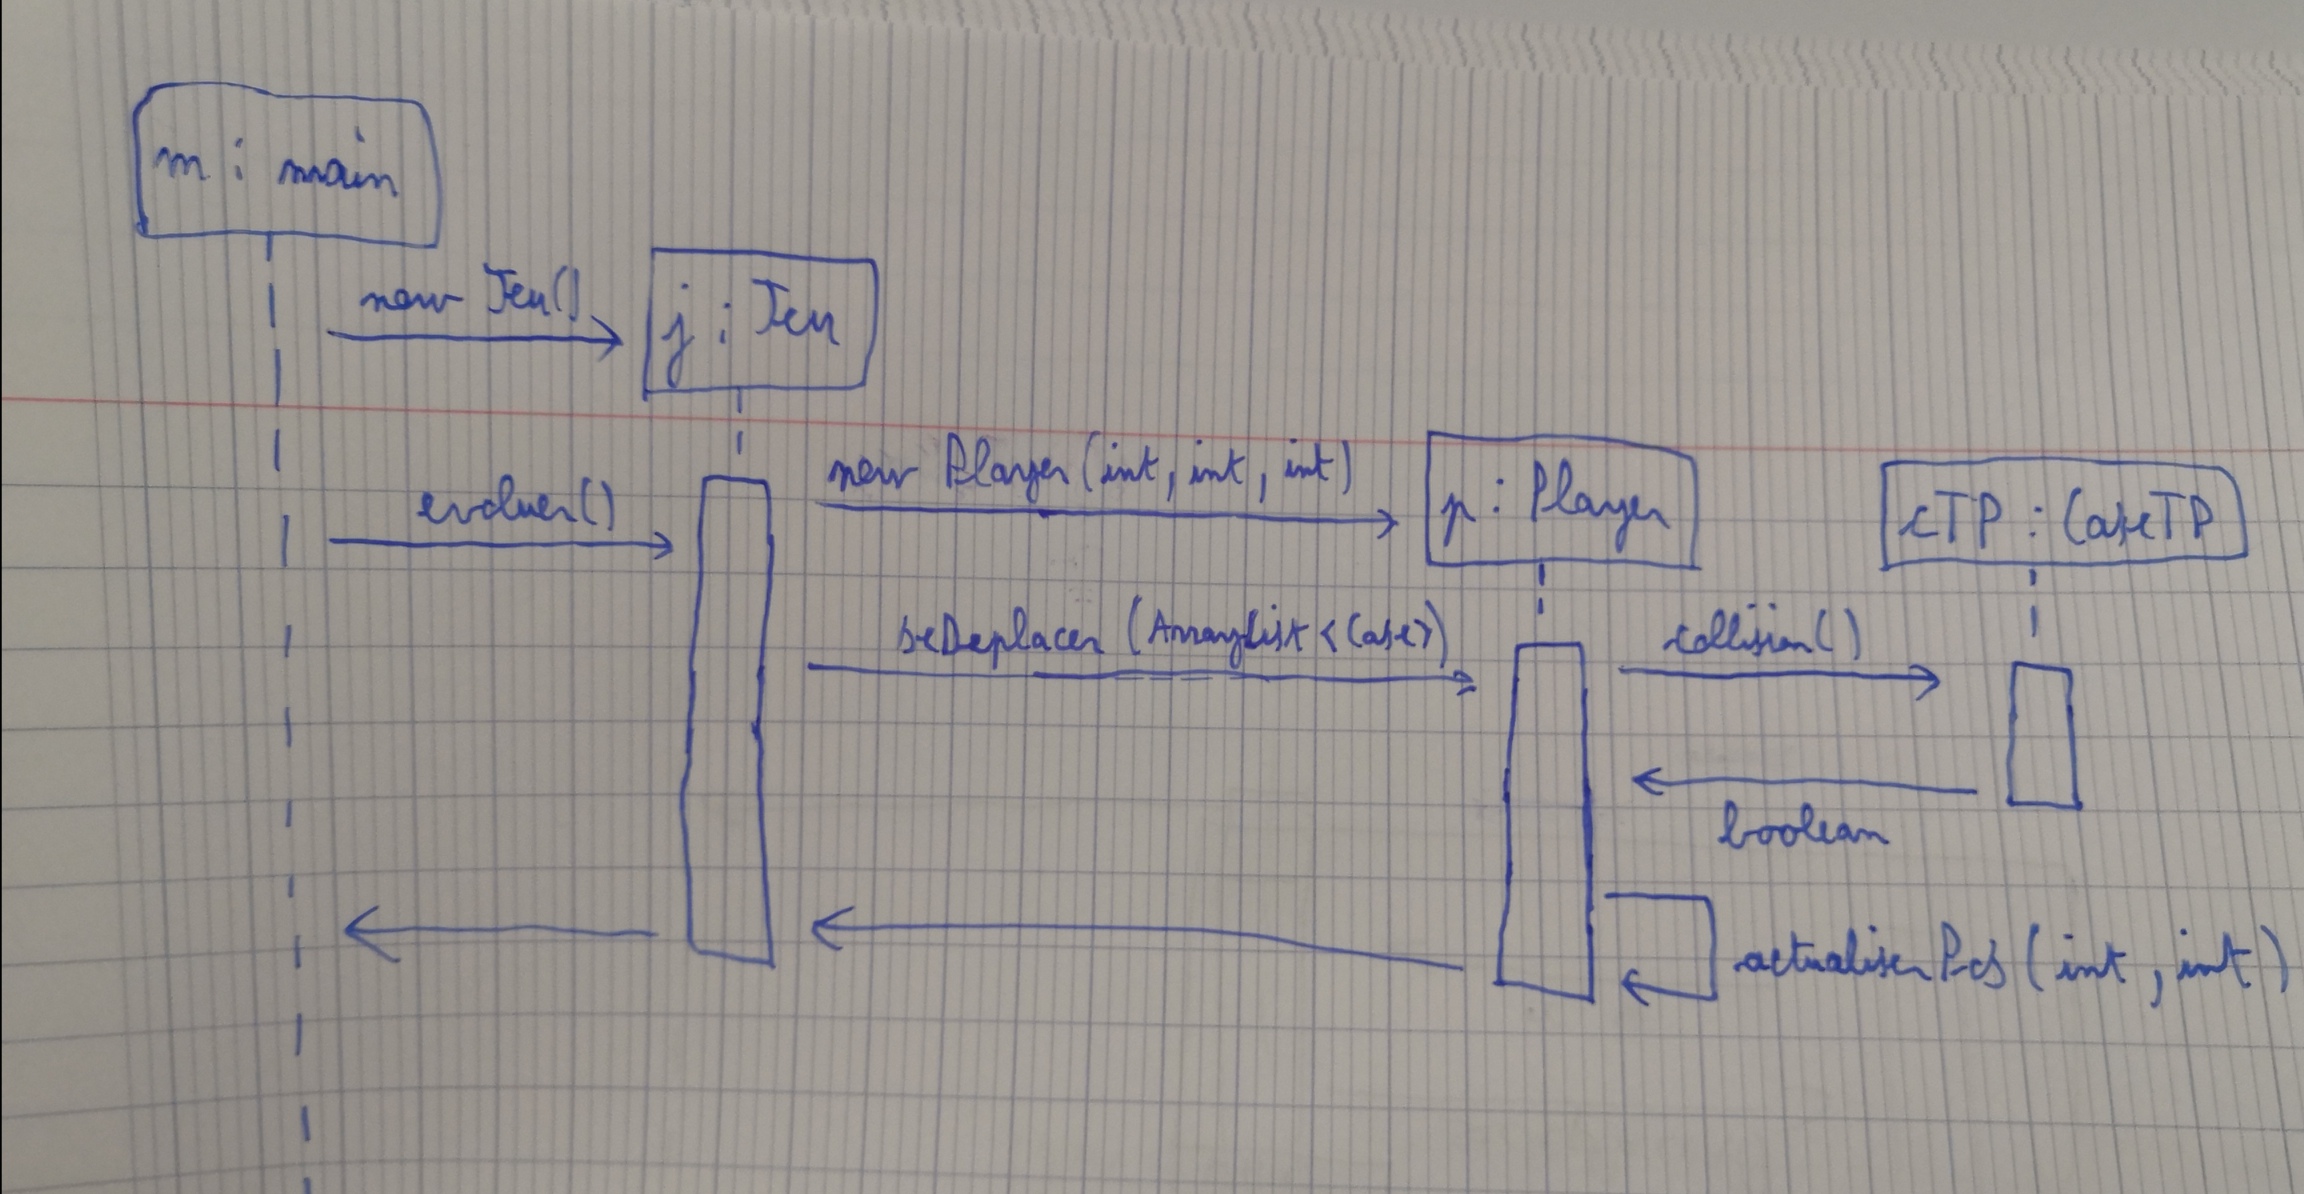 m : main
new Jeu()
j : Jeu
new Player(int, int, int)
p : Player
cTP : CaseTP
evoluer()
seDeplacer (ArrayList<Case>)
collision()
boolean
actualiserPos (int, int)